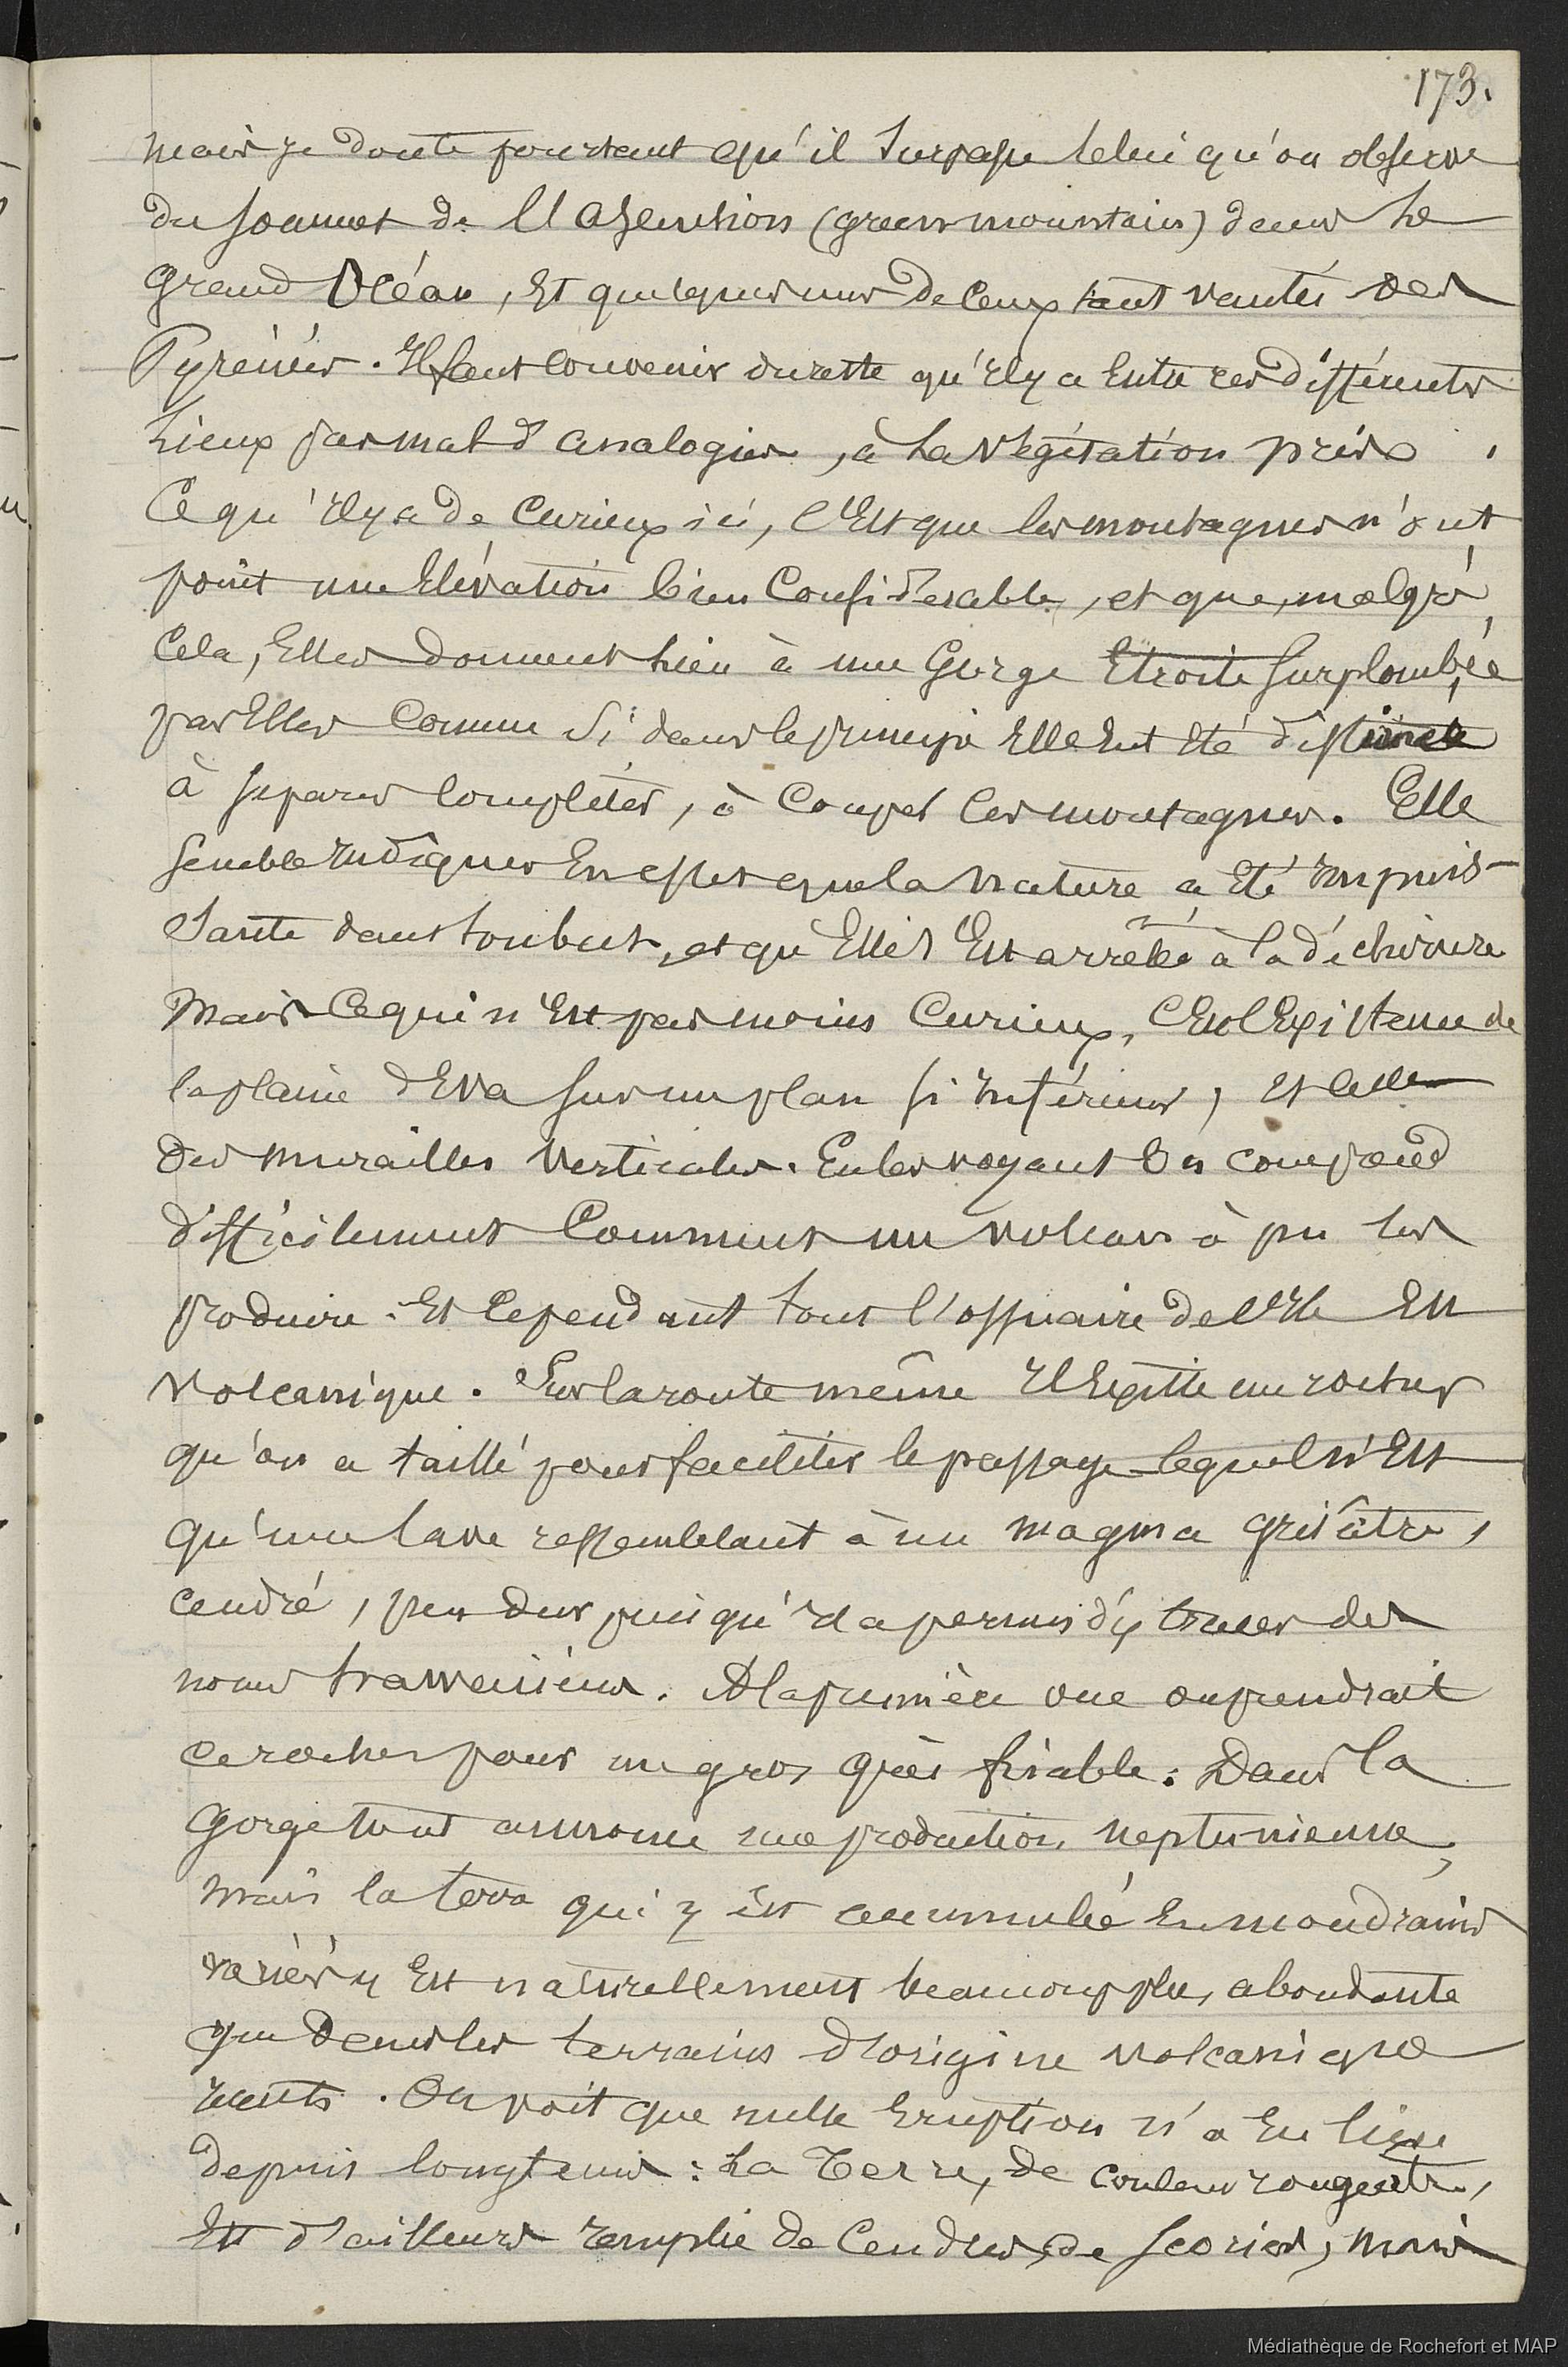 173.
mais je doute pourtant qu'il surpasse celui qu'on observe
du sommet de l'Ascention (green mountain) dans le
grand Océan, Et quelques uns de ceux tant vantés des
Pyrénées. Il faut convenir du reste qu'il y a Entre ces différents
lieux pas mal d'analogies, à la végétation près.
Ce qu'il y a de curieux ici, c'Est que les montagnes n'ont
point une Elévation bien considérable, et que, malgré
cela, Elles donnent lieu à une Gorge Etroite surplombée
par Elles comme si dans le principe Elle Eut Eté destinée
à séparer complétés, à couper les montagnes. Elle
semble Indiquer En effet que la nature a Eté Impuis-
sante dans son but, et qu'Elle s'Est arrêtée à la déchirure
Mais ce qui n'Est pas moins curieux, c'Est l'Existence de
la plaine d'Eva sur un plan si Inférieur, Et celle
des murailles verticales. En les voyant on comprend
difficilement comment un volcan à pu les
produire. Et cependant tout l'ossuaire de l'Ile Est
volcanique. Sur la route même Il Existe un rocher
qu'on a taillé pour faciliter le passage lequel n'Est
qu'une lave ressemblant à un magma grisâtre,
cendré, peu dur puisqu'Il a permis d'y tracer des
noms tahitiens. A la première vue on prendrait
ce rocher pour un gros grès friable. Dans la
gorge tout annonce une production neptunienne,
mais la terre qui y est accumulée En mondrains
variés y Est naturellement beaucoup plus abondante
que dans les terrains d'origine volcanique
récents. On voit que nulle Eruption n'a Eu lieu
depuis longtems : La Terre, de couleur rougeatre,
Est d'ailleurs remplie de Cendres, de scories, mais
Médiathèque de Rochefort et MAP